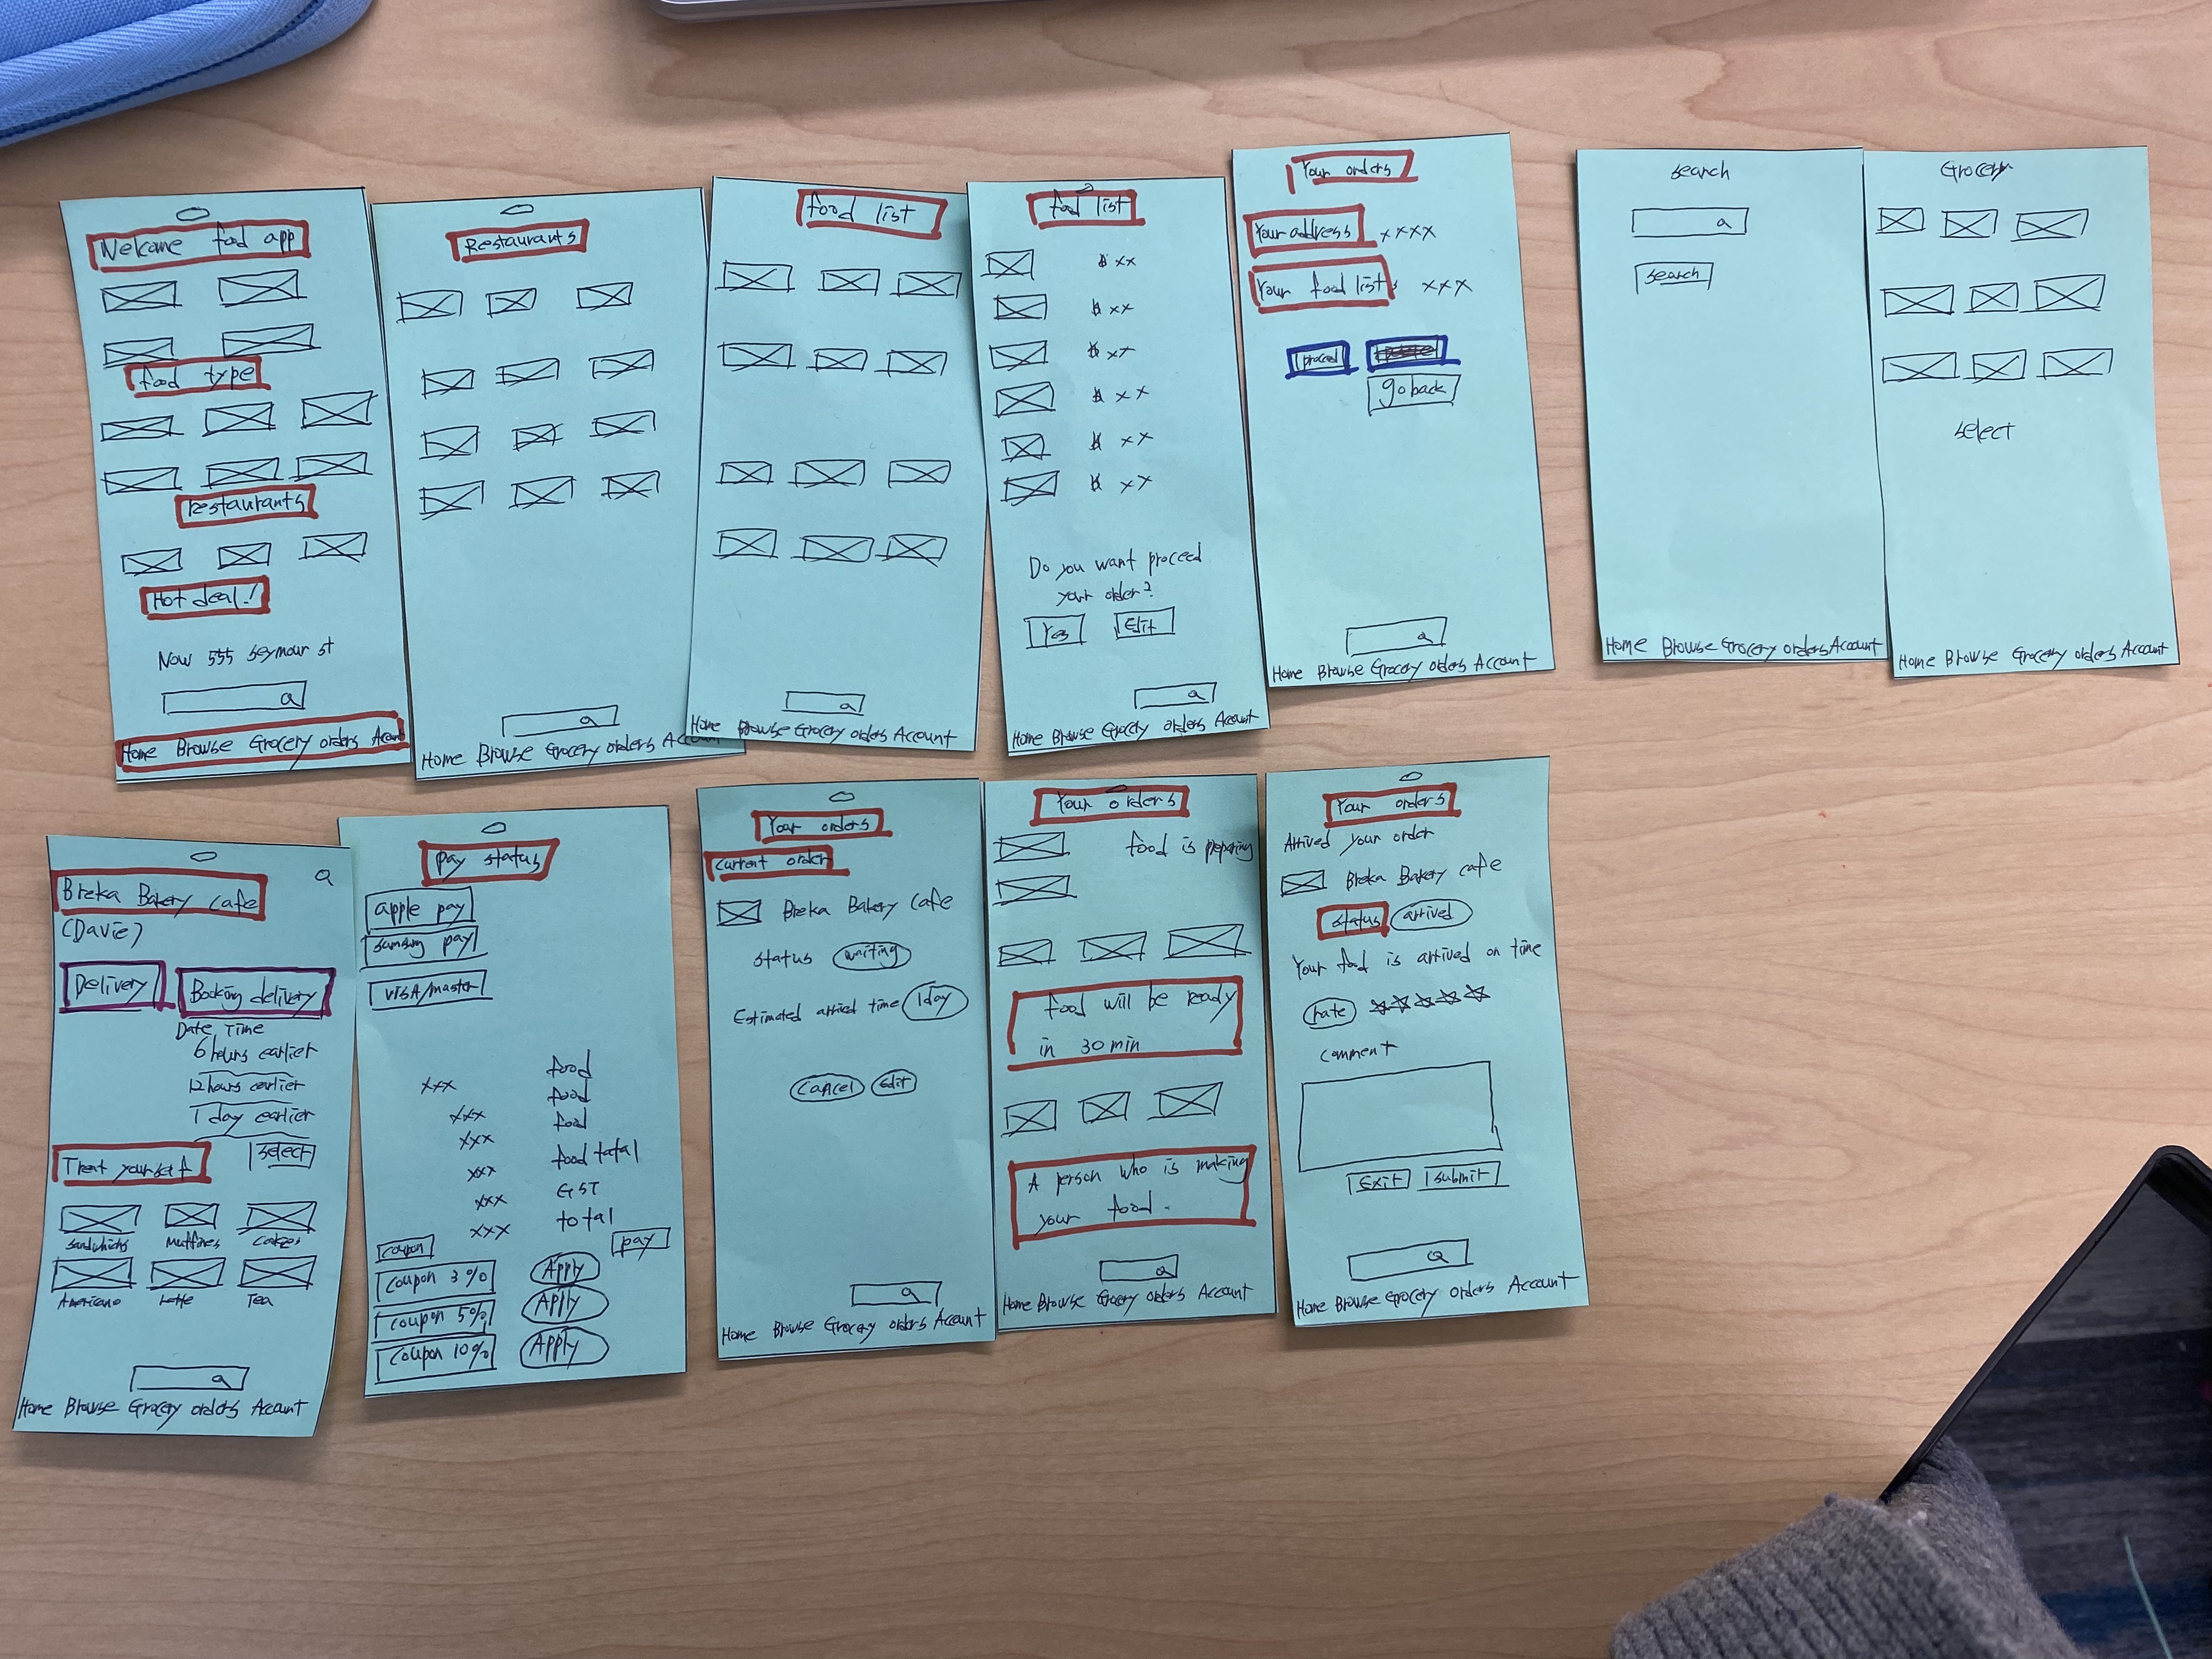 Welcome food app
food type
restaurants
Hot deal!
Now 555 Seymour st
Home Browse Grocery orders Account
Restaurants
Home Browse Grocery orders Account
food list
Home Browse Grocery orders Account
food list
$ xx
$ xx
$ xx
$ xx
$ xx
$ xx
Do you want proceed
your order?
Yes Edit
Home Browse Grocery orders Account
Your orders
Your address xxxx
Your food lists xxx
proceed
go back
Home Browse Grocery orders Account
search
search
Home Browse Grocery orders Account
Grocery
select
Home Browse Grocery orders Account
Breka Bakery cafe
(Davie)
Delivery Booking delivery
Date, Time
6 hours earlier
12 hours earlier
1 day earlier
select
Treat yourself
Sandwichs
Tea
Home Browse Grocery orders Account
Pay status
apple pay
samsung pay
VISA/master
food
xxx food
xxx food
xxx
xxx food total
xxx GST
xxx total
coupon pay
coupon 3% Apply
coupon 5% Apply
coupon 10% Apply
Your orders
current order
Breka Bakery cafe
status waiting
Estimated arrived time 1day
cancel edit
Home Browse Grocery orders Account
Your orders
food is preparing
food will be ready
in 30 min
A person who is making
your food.
Home Browse Grocery orders Account
Your orders
Arrived your order
Breka Bakery cafe
status arrived
Your food is arrived on time
rate
comment
Exit submit
Home Browse Grocery orders Account